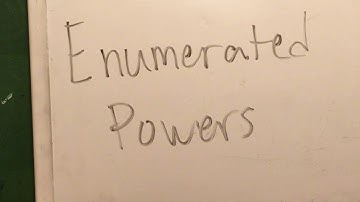 Enumerated
Powers